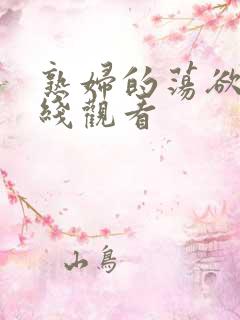 熟婦的蕩欲
綫觀看
山鳥